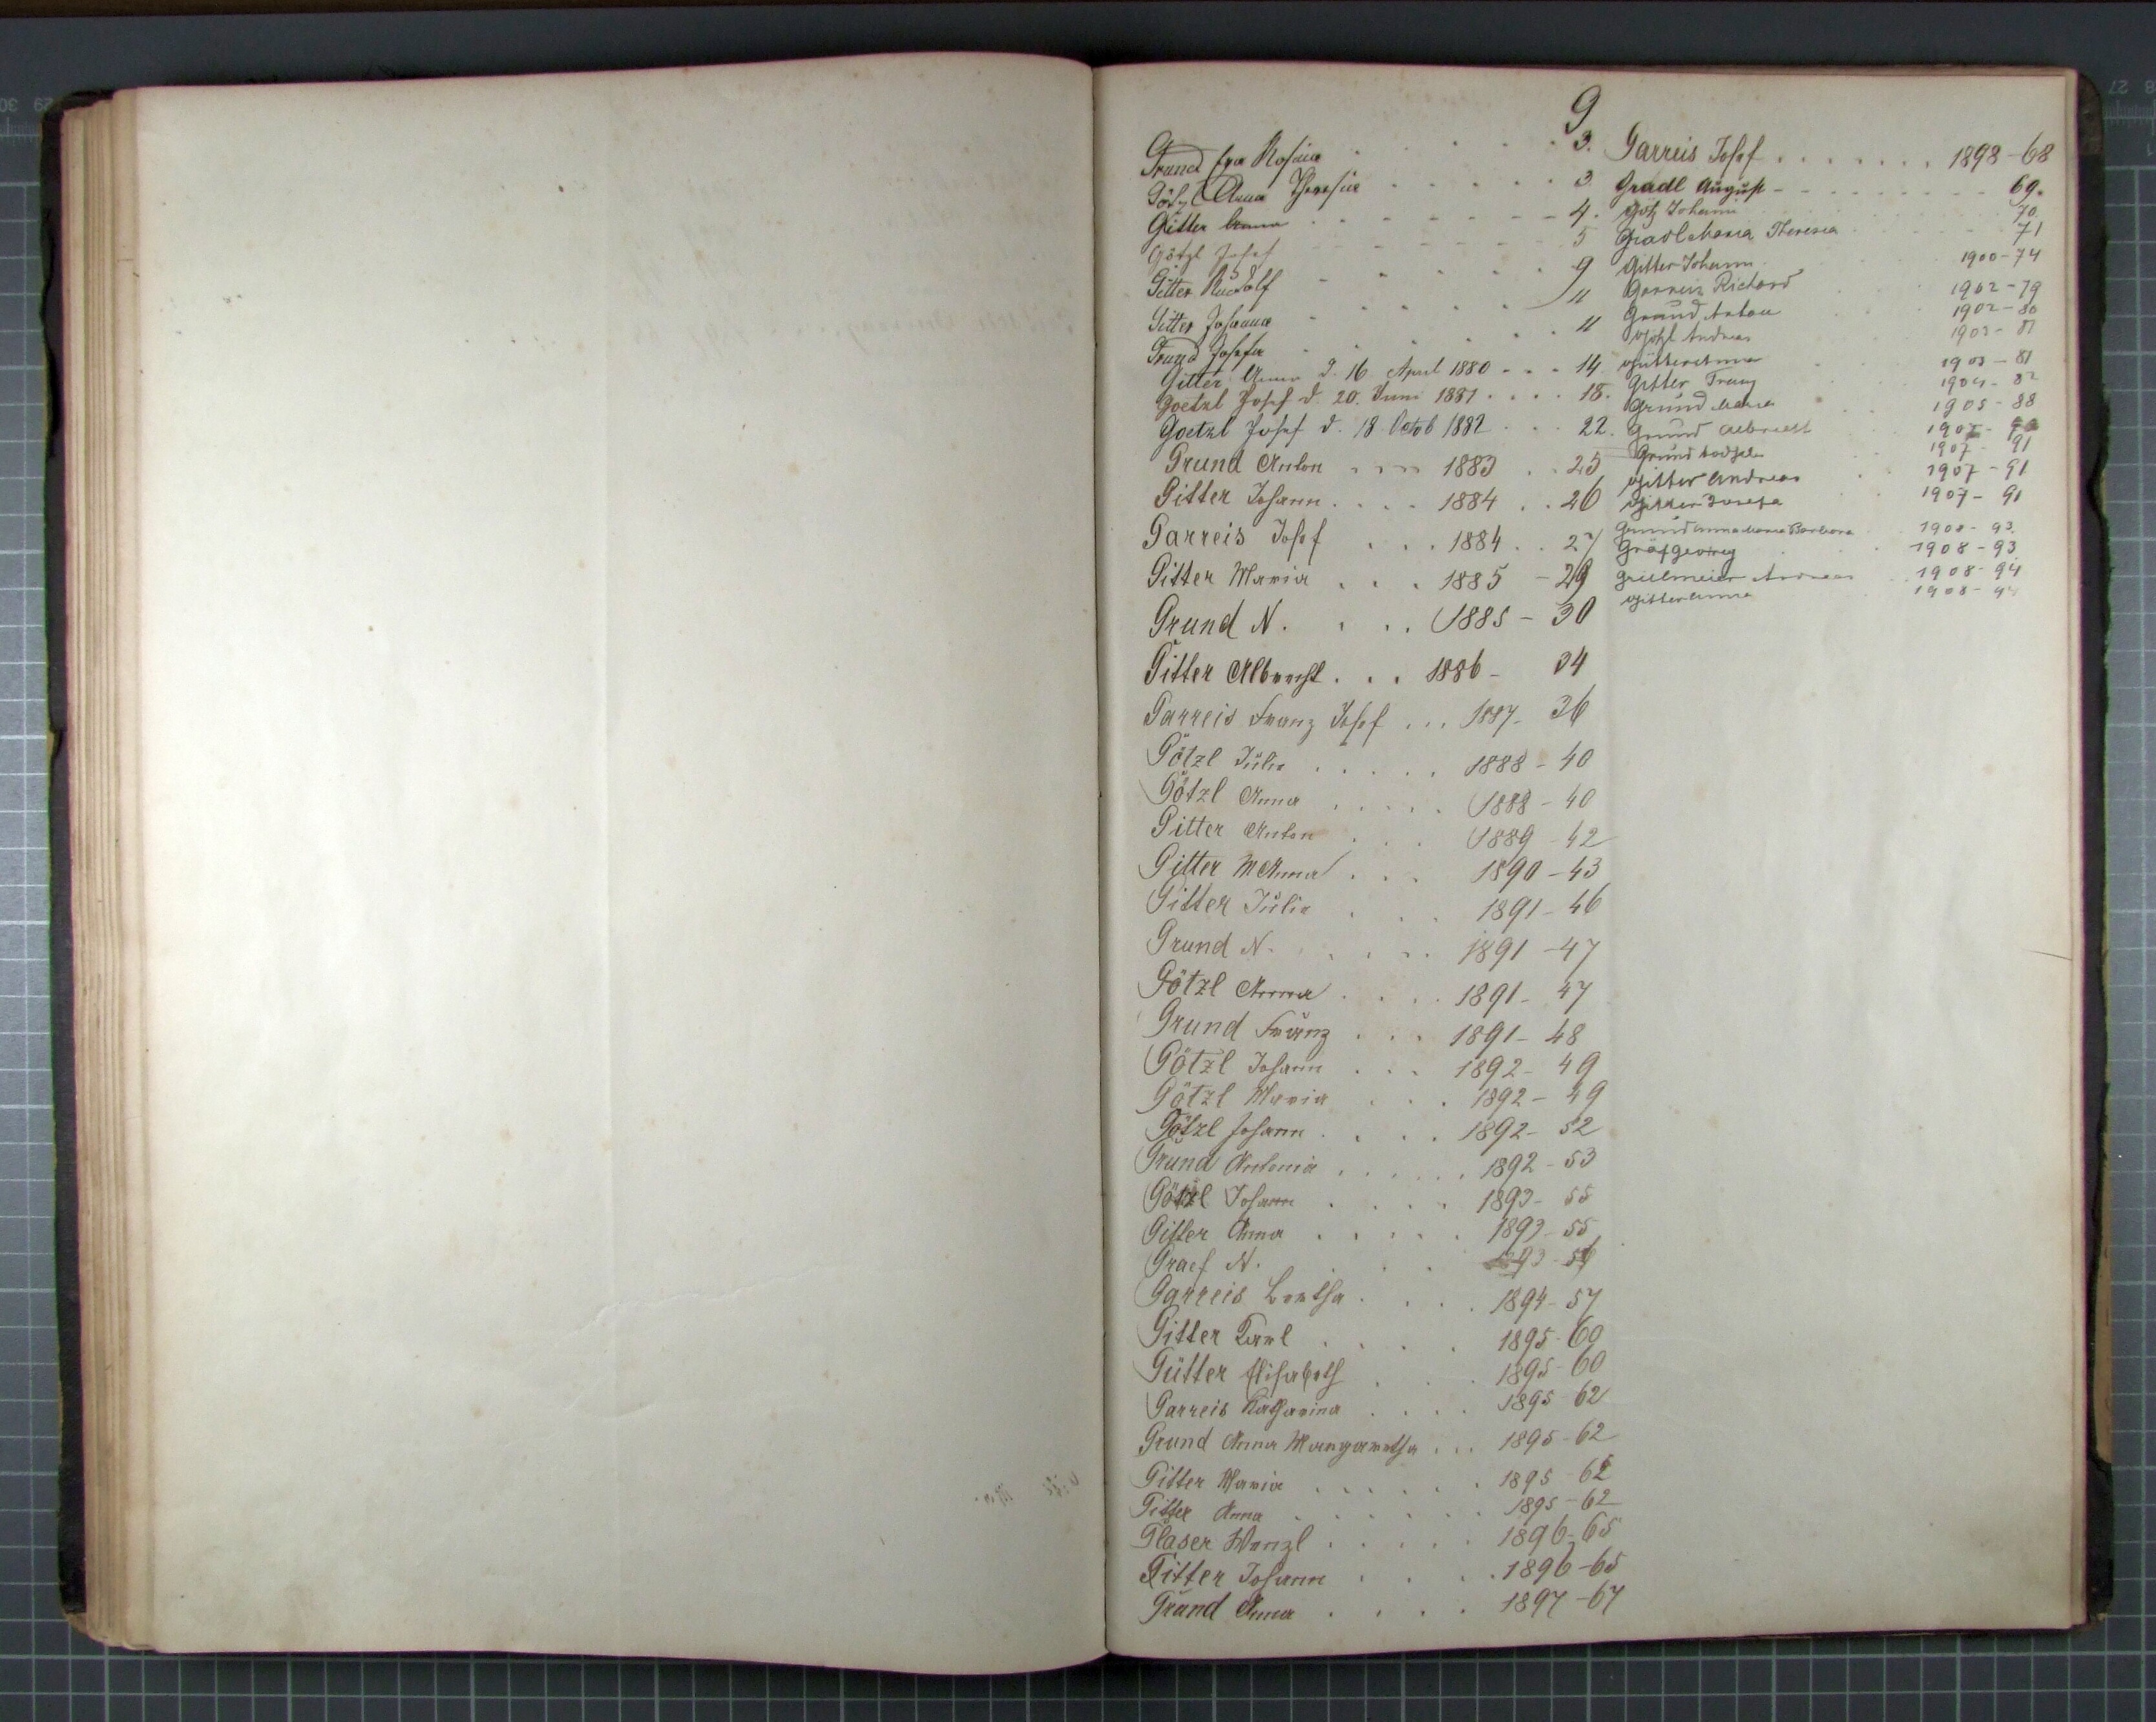 G
Grund Eva Rosina . . . . . 3.
Götzl Anna Theresia . . . . . 3
Gitter Anna . . . . . 4.
Götzl Josef 5
Gitter Rudolf . . . . . 9
Gitter Johanna . . . . 11
Grund Josefa . . 11
Gitter Anna d. 16. April 1880 - - - 14
Goetzl Josef d. 20. Juni 1881 . . . . 18.
Goetzl Josef d. 18 Octob 1882 . . . 22.
Grund Anton . . . 1883 . . 25
Gitter Johann . . . . 1884 . . 26
Garreis Josef . . . 1884 . . 27
Gitter Maria . . . 1885 - 29
Grund N. . . . 1885 - 30
Gitter Albrecht . . . 1886 - 34
Garreis Franz Josef . . . 1887 - 36
Götzl Julie . . . . . 1888 - 40
Götzl Anna . . . . . 1888 - 40
Gitter Anton . . . 1889 - 42
Gitter M Anna . . . 1890 - 43
Gitter Julie . . . 1891 - 46
Grund N. . . . . 1891 - 47
Götzl Anna . . . . 1891 - 47
Grund Franz . . . 1891 - 48
Götzl Johann . . . 1892 - 49
Götzl Maria . . . 1892 - 49
Götzl Johann . . . . 1892 - 52
Grund Antonia . . . . . . 1892 - 53
Götzl Johann . . . . 1893 - 55
Gitter Anna . . . . . 1893 - 55
Graef N. . . . 1893 - 56
Garreis Bertha . . . . 1894 - 57
Gitter Karl . . . . 1895 - 60
Gütter Elisabeth . . . 1895 - 60
Garreis Katharina . . . . 1895 62
Grund Anna Margaretha . . . 1895 - 62
Gitter Maria . . . . . . 1895 62
Gitter Anna . . . . . . 1895 - 62
Glaser Wenzl . . . . . 1896 - 65
Gitter Johann . . . . 1896 - 65
Grund Anna . . . . 1897 - 67
Garreis Josef . . . . . . . 1898 - 68
Gradl August - - - - - - - - 69.
Götz Johann 70.
Gradl Maria Theresia . . . 71
Gitter Johann 1900 - 74
Garreis Richard . . 1902 - 79
Grund Anton . . 1902 - 80
Götzl Andreas 1903 - 81
Gütter Anna . 1903 - 81
Gitter Franz 1904 - 82
Grund Maria . . 1905 - 88
Grund Albrecht . . 1907 -
Grund 1907 - 91
Gitter Andreas . 1907 - 91
Gitter Josefa 1907 - 91
Grund Anna Maria Barbara . 1908 - 93.
Gräf Georg . 1908 - 93
Grillmeier Andreas . . 1908 - 94
Gitter Anna 1908 -